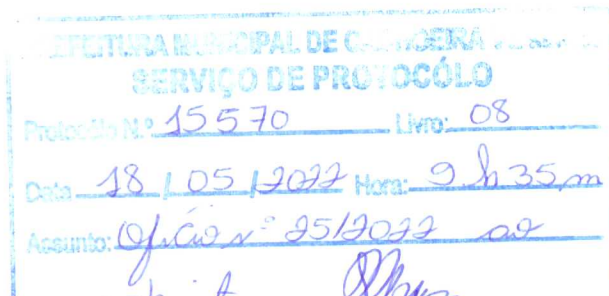 MUNICIPAL DE
SERVIÇO DE PROTOCÓLO
Protocólo N.º 15570 Livro: 08
Data 18 / 05 / 2022 Hora: 9 h 35 m
Assunto: Ofício nº 25/2022 ao